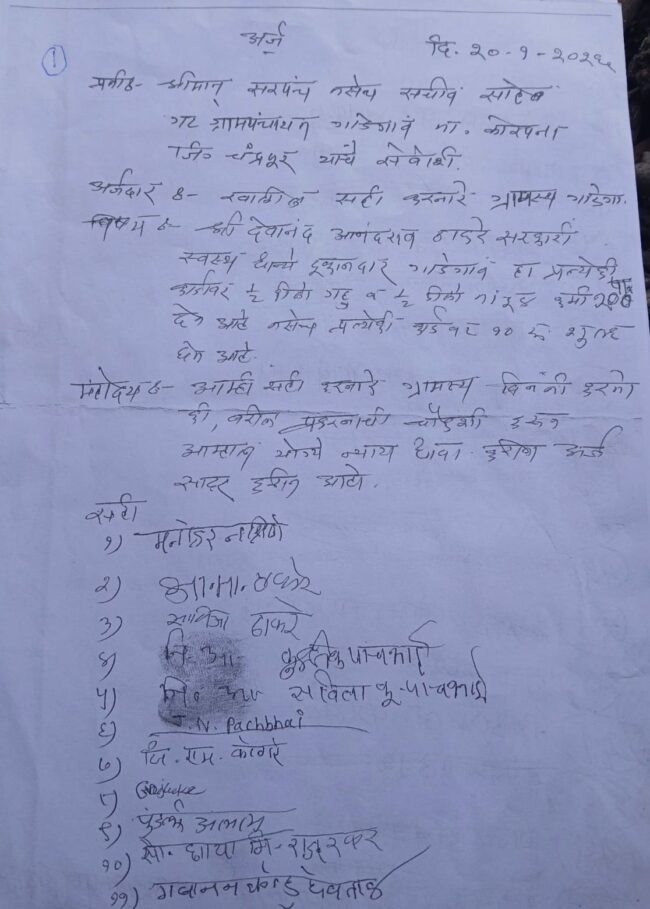 १
अर्ज
दि. २०-१-२०२६
प्रति:- श्रीमान सरपंच तसेच सचीव साहेब
गट ग्रामपंचायत गाडेगावं ता. कोरपना
जि. चंद्रपूर यांचे सेवेशी.
अर्जदार :- खालील सही करनारे ग्रामस्थ गाडेगा.
विषय :- श्री देवानंद आनंदराव ठाकरे सरकारी
स्वस्थ धान्ये दुकानदार गाडेगावं हा प्रत्येकी
कार्डावर १/२ किलो गहु व १/२ किलो तांदुळ कमी
देत आहे तसेच प्रत्येकी कार्ड वर १० रु शुल्क
घेत आहे.
महोदय :- आम्ही सही करनारे ग्रामस्थ विनंती करतो
की, वरील प्रकरनाची चौकशी करुन
आम्हाल योग्ये न्याय द्यावा. करीता अर्ज
सादर करीत आहो.
सही
१)
२) ठाकरे
३) ठाकरे
४) नि. आ. पाचभाई
५) नि. आ. सविता कु. पाचभाई
६) J. N. Pachbhai
७) जि. राम. कोंगरे
८)
९) पुंडलीक आत्राम
१०) सौ. छाया
११) गजानन कोंडु देवताळे